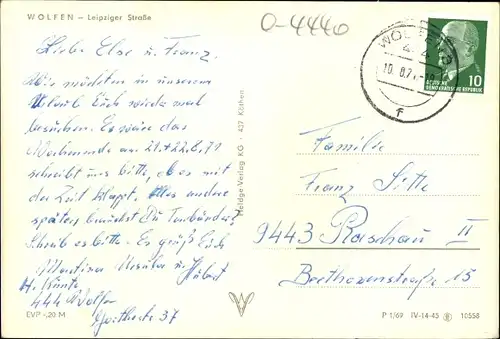 WOLFEN – Leipziger Straße
O-4440
Liebe Else u. Franz.
Wir möchten in unserem
Urlaub Euch wieder mal
besuchen. Es wäre das
Wochenende am 21.+22.8.71
schreibt uns bitte, ob es mit
der Zeit klappt. Alles andere
später, brauchst Du
Schreib es bitte. Es grüßt Euch
Martina u. Hubert
H. Kuntz
444 Wolfen
37
EVP -,20 M
Heldge-Verlag KG · 437 Köthen
WOLFEN
10.8.71
f
10
DEUTSCHE
DEMOKRATISCHE REPUBLIK
Familie
Franz Sitte
9443 Raschau II
Beethovenstraße 15
P 1/69 IV-14-45 10558